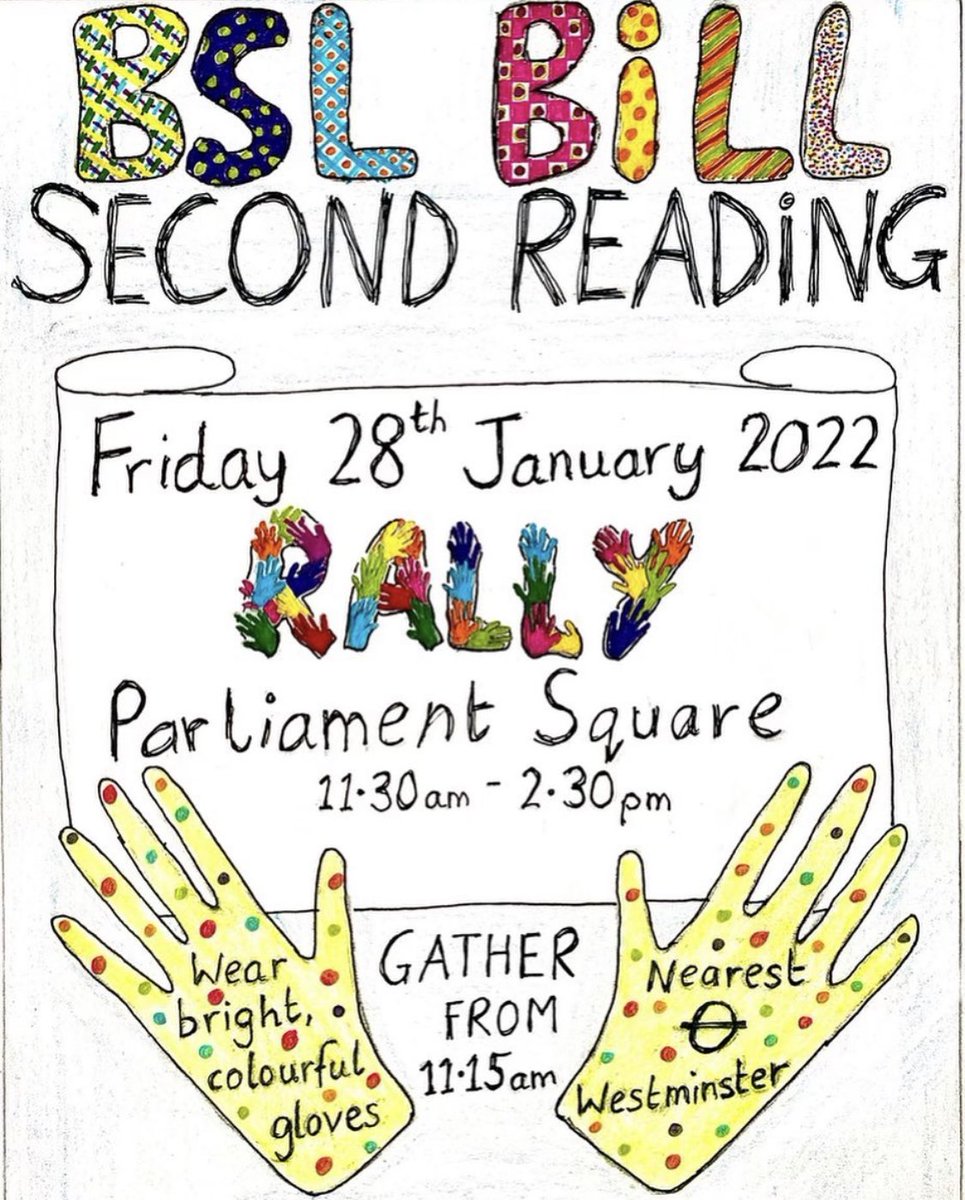 BSL BiLL
SECOND READiNG
Friday 28th January 2022
RALLY
Parliament Square
11·30am - 2·30pm
Wear
bright,
colourful
gloves
GATHER
FROM
11·15am
Nearest
Westminster